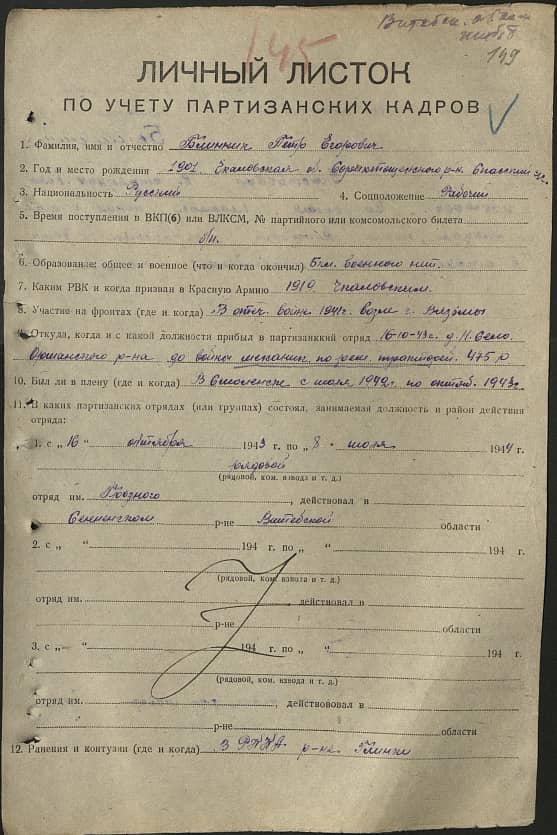 145
Витебск.
149
ЛИЧНЫЙ ЛИСТОК
ПО УЧЕТУ ПАРТИЗАНСКИХ КАДРОВ
1. Фамилия, имя и отчество Блинник Петр Егорович
2. Год и место рождения 1901 Чкаловская об.
3. Национальность Русский 4. Соцположение Рабочий
5. Время поступления в ВКП(б) или ВЛКСМ, № партийного или комсомольского билета
б/п.
6. Образование: общее и военное (что и когда окончил) 5 кл. военного нет.
7. Каким РВК и когда призван в Красную Армию 1919 Чкаловским.
8. Участие на фронтах (где и когда) В отеч. войне 1941 г. возле г. Вязьмы
9. Откуда, когда и с какой должности прибыл в партизанский отряд 16-10-43 г. д. Н. Село
Оршанского р-на до войны механик по рем. тракторов. 475 р
10. Был ли в плену (где и когда) В Смоленске с июля 1942 г. по октяб. 1943 г.
11. В каких партизанских отрядах (или группах) состоял, занимаемая должность и район действия
отряда:
1. с „ 16 “ октября 1943 г. по „ 8 “ июля 1944 г.
рядовой
(рядовой, ком. взвода и т. д.)
отряд им. , действовал в
Сенненском р-не Витебской области
2. с „ “ 194 г. по „ “ 194 г.
(рядовой, ком. взвода и т. д.)
отряд им. действовал в
р-не области
3. с „ “ 194 г. по „ “ 194 г.
(рядовой, ком. взвода и т. д.)
отряд им. , действововал в
р-не области
12. Ранения и контузии (где и когда) В РККА р-не